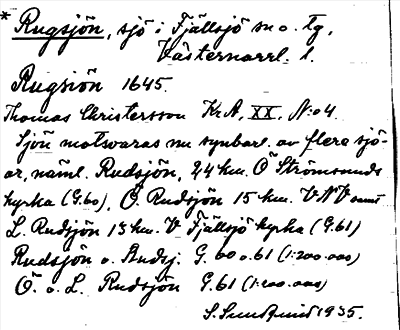 * Rugsjön, sjö i Fjällsjö sn o. tg,
Västernorrl. l.
Rugsiön 1645.
Thomas Christersson KrA, XX. N:o 4.
Sjön motsvaras nu synbarl. av flera sjö-
ar, näml. Rudsjön, 24 km. Ö Strömsunds
kyrka (G.60), Ö. Rudsjön 15 km. VNV samt
L. Rudsjön 13 km. V Fjällsjö kyrka (G.61)
Rudsjön o. Rudsj. G. 60 o. 61 (1:200.000)
Ö. o. L. Rudsjön G.61 (1:200.000)
1935.